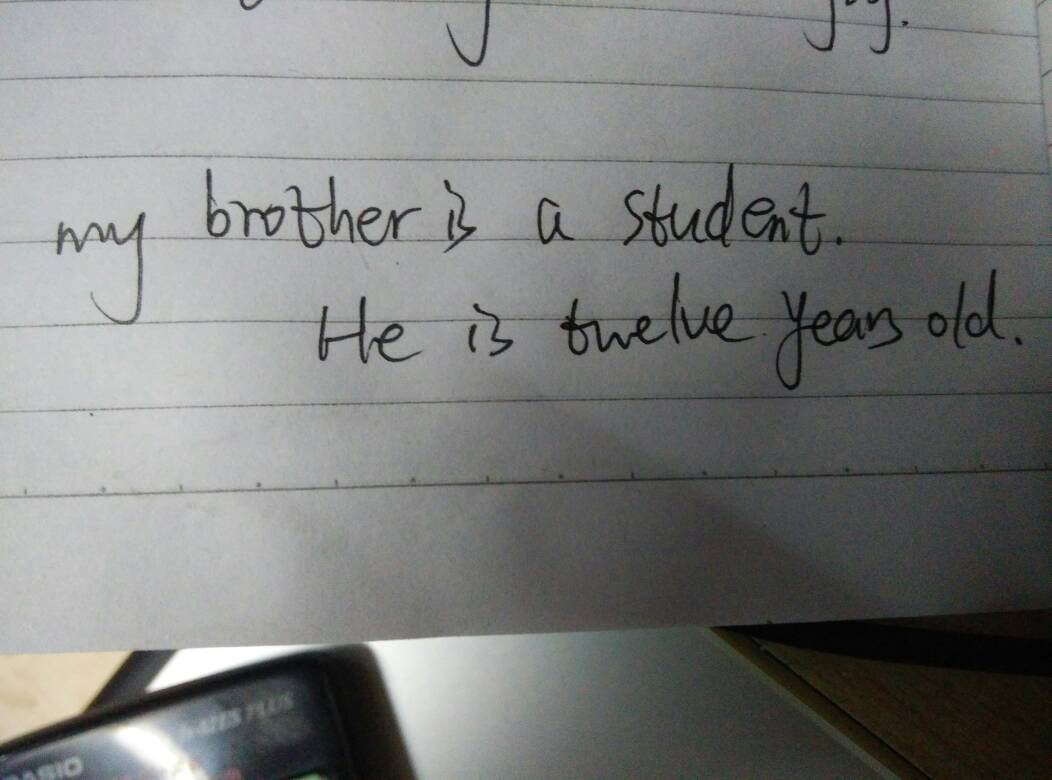 my brother is a student.
He is twelve years old.
PLUS
CASIO